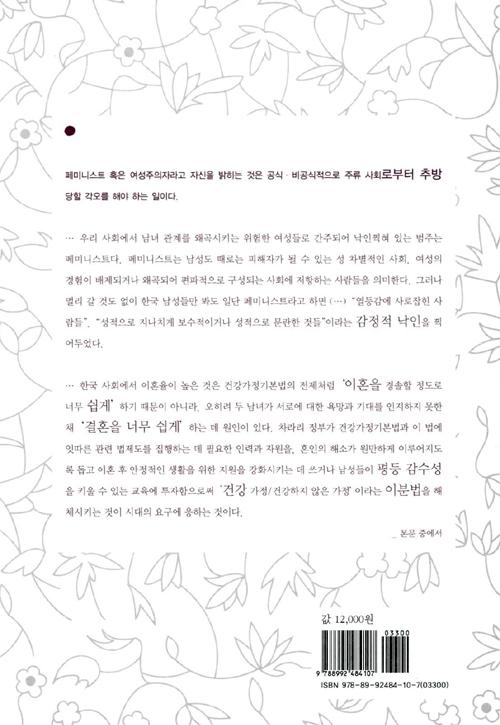 페미니스트 혹은 여성주의자라고 자신을 밝히는 것은 공식 · 비공식적으로 주류 사회로부터 추방
당할 각오를 해야 하는 일이다.
… 우리 사회에서 남녀 관계를 왜곡시키는 위험한 여성들로 간주되어 낙인찍혀 있는 범주는
페미니스트다. 페미니스트는 남성도 때로는 피해자가 될 수 있는 성 차별적인 사회, 여성의
경험이 배제되거나 왜곡되어 편파적으로 구성되는 사회에 저항하는 사람들을 의미한다. 그러나
멀리 갈 것도 없이 한국 남성들만 봐도 일단 페미니스트라고 하면 (…) “열등감에 사로잡힌 사
람들”, “성적으로 지나치게 보수적이거나 성적으로 문란한 것들”이라는 감정적 낙인을 찍
어두었다.
… 한국 사회에서 이혼율이 높은 것은 건강가정기본법의 전제처럼 ‘이혼을 경솔할 정도로
너무 쉽게’ 하기 때문이 아니라, 오히려 두 남녀가 서로에 대한 욕망과 기대를 인지하지 못한
채 ‘결혼을 너무 쉽게’ 하는 데 원인이 있다. 차라리 정부가 건강가정기본법과 이 법에
잇따른 관련 법제도를 집행하는 데 필요한 인력과 자원을, 혼인의 해소가 원만하게 이루어지도
록 돕고 이혼 후 안정적인 생활을 위한 지원을 강화시키는 데 쓰거나 남성들이 평등 감수성
을 키울 수 있는 교육에 투자함으로써 ‘건강 가정/건강하지 않은 가정’이라는 이분법을 해
체시키는 것이 시대의 요구에 응하는 것이다.
_ 본문 중에서
값 12,000원
03300
9 788992 484107
ISBN 978-89-92484-10-7(03300)